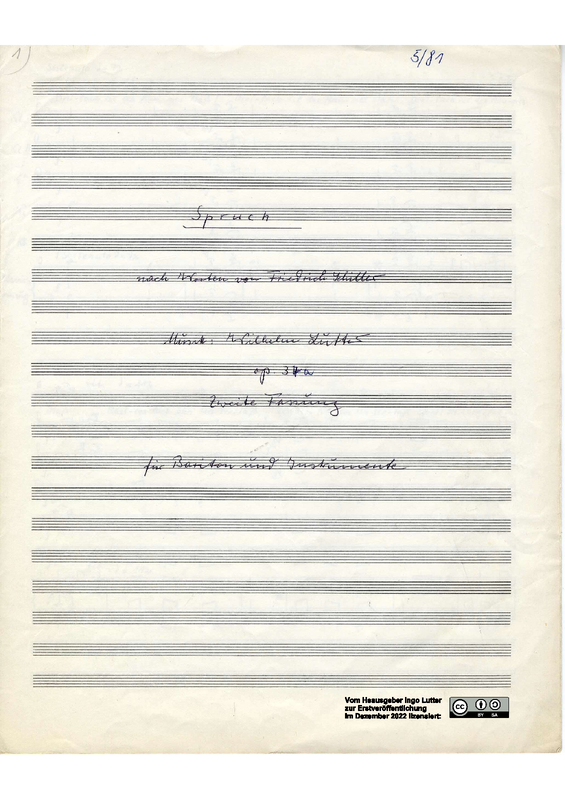 1)
5/81
Spruch
nach Worten von Friedrich Schiller
Musik: Wilhelm Lutter
op. 34a
Zweite Fassung
für Bariton und Instrumente
Vom Hesusgeber Ingo Lutter
zur Erstveröffentlichung
im Dezember 2022 lizensiert:
cc
BY SA